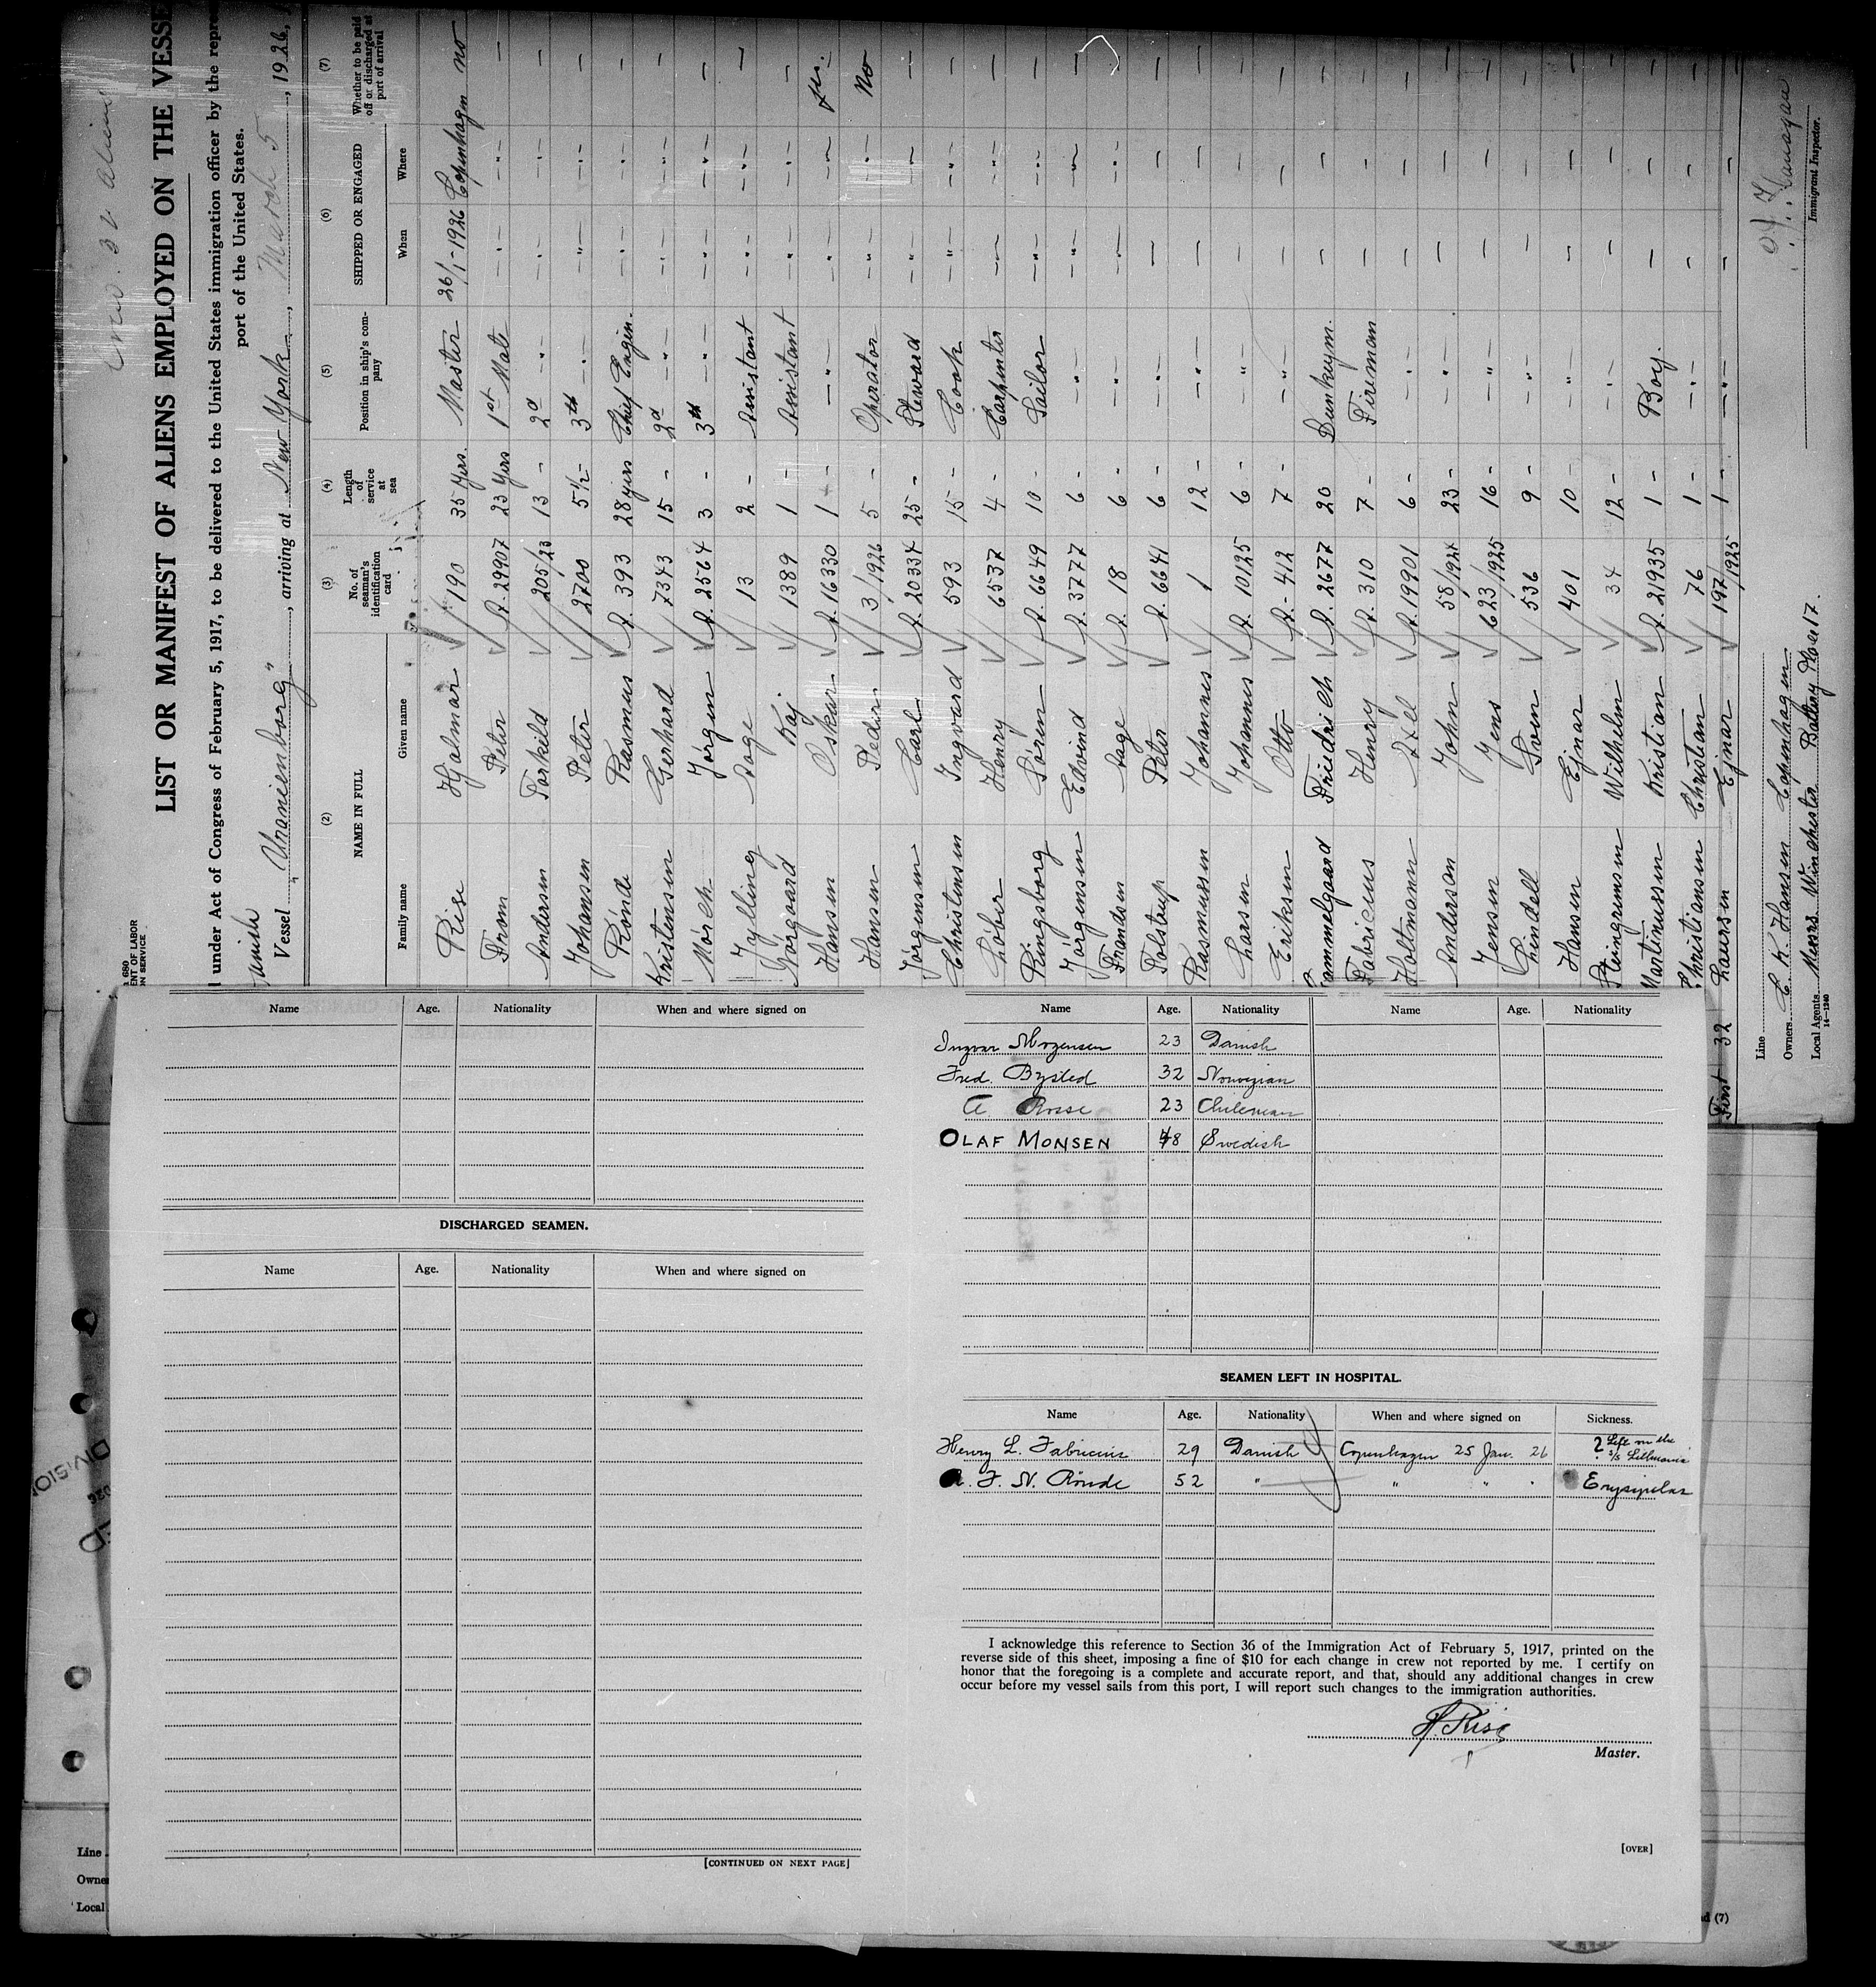 LIST OR MANIFEST OF ALIENS EMPLOYED ON THE VESSE
under Act of Congress of February 5, 1917, to be delivered to the United States immigration officer by the repre
port of the United States.
Vessel "Uranienborg", arriving at New York, March 5, 1926,
680
ENT OF LABOR
ON SERVICE
(2) (3) (4) (5) (6) (7)
NAME IN FULL
Family name Given name
No. of seaman's identification card
Length of service at sea
Position in ship's company
SHIPPED OR ENGAGED
When Where
Whether to be paid off or discharged at port of arrival
Rise Hjalmar 190 35 Yrs. Master 26/1-1926 Copenhagen no
From Peter A. 29907 23 Yrs 1st Mate -"- -"- -
Andersen Torkild 205/23 13 - 2d -"- -"- -"- -
Johansen Peter 2700 5 1/2 - 3th -"- -"- -"- -
Rønde Rasmus A. 393 28 yrs Chief Engin. -"- -"- -
Kristensen Gerhard 7343 15 - 2d -"- -"- -"- -
Mørch Jørgen A. 2564 3 - 3th -"- -"- -"- -
Jylling Aage 13 2 - Assistant -"- -"- -
Nørgaard Kaj 1389 1 - Assistant -"- -"- -
Hansen Oskar A. 16330 1 - -"- -"- -"- yes.
Hansen Peder 3/1926 5 - Operator -"- -"- No
Jørgensen Carl A. 20334 25 - Steward -"- -"- -
Christensen Ingvard 593 15 - Cook -"- -"- -
Løber Henry 6537 4 - Carpenter -"- -"- -
Ringsborg Søren A. 6649 10 - Sailor -"- -"- -
Jørgensen Edvind A. 3777 6 - -"- -"- -"- -
Frandsen Aage A. 18 6 - -"- -"- -"- -
Tolstrup Peter A. 6641 6 - -"- - - -
Rasmussen Johannes 1 12 - -"- - - -
Larsen Johannes A. 10125 6 - " - - -
Eriksen Otto A. - 412 7 - -"- - - -
Gammelgaard Friedrich A. 2677 20 Dunkeym. - - -
Fabricius Henry A. 310 7 - Fireman - - -
Holtmann Axel A. 19901 6 - -"- - - -
Anderson John 58/1924 23 - -"- - - -
Jensen Jens 623/1925 16 - -"- - - -
Lindell Sven 536 9 - " - - -
Hansen Ejnar 401 10 - " - - -
Wilhelm 34 12 - -"- - - -
Martinussen Kristian A. 2935 1 - Boy. - - -
Christiansen Christian 76 1 - -"- - - -
Laursen Ejnar 197/1925 1 - -"- - - -
First 32
Line
Owners C. K. Hansen Copenhagen
Local Agents Messrs. Winchester Battery Place 17.
14-1240
Immigrant Inspector.
Name Age. Nationality When and where signed on
DISCHARGED SEAMEN.
Name Age. Nationality When and where signed on
[CONTINUED ON NEXT PAGE]
Name Age. Nationality Name Age. Nationality
Ingvar Morgensen 23 Danish
Fred. Bysted 32 Norwegian
A Rosse 23 Chilenian
OLAF MONSEN 48 Swedish
SEAMEN LEFT IN HOSPITAL.
Name Age. Nationality When and where signed on Sickness.
Henry L. Fabricius 29 Danish Copenhagen 25 Jan. 26 ? Left on the S/S Lithuania
R. F. N. Rønde 52 " " " " Erysipelas
I acknowledge this reference to Section 36 of the Immigration Act of February 5, 1917, printed on the
reverse side of this sheet, imposing a fine of $10 for each change in crew not reported by me. I certify on
honor that the foregoing is a complete and accurate report, and that, should any additional changes in crew
occur before my vessel sails from this port, I will report such changes to the immigration authorities.
H. Rise
Master.
[OVER]
Line
Owne
Local
DIVISION
d (7)